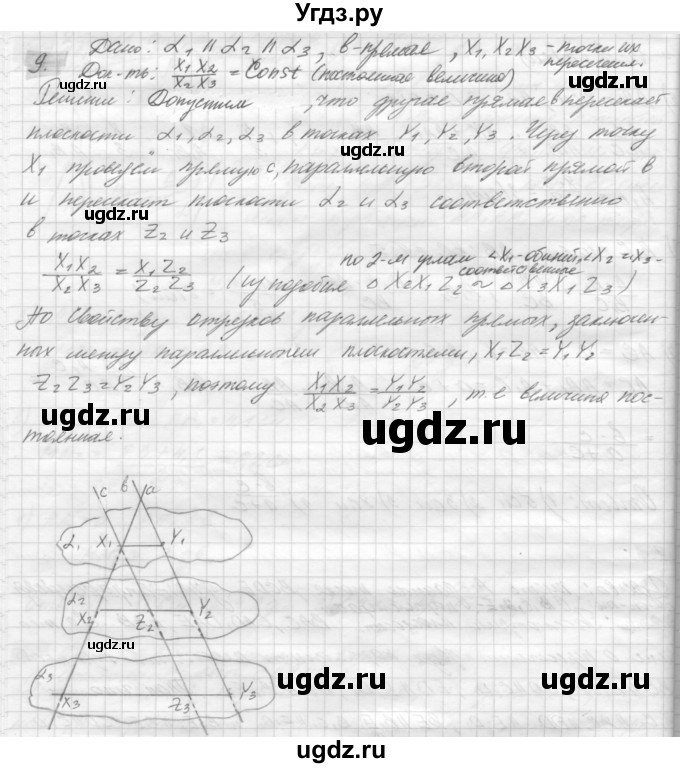 Угдз.ру
9. Дано: α₁ ∥ α₂ ∥ α₃, в-прямая, X₁, X₂ X₃ - точки их
пересечения.
Док-ть: X₁X₂/X₂X₃ = Const (постоянная величина)
Решение: Допустим, что другая прямая в пересекает
плоскости α₁, α₂, α₃ в точках Y₁, Y₂, Y₃. Через точку
X₁ проведём прямую с, параллельную второй прямой в
и пересекает плоскости α₂ и α₃ соответственно
ugdz.ru
в точках Z₂ и Z₃
ugdz.ru
X₁X₂/X₂X₃ = X₁Z₂/Z₂Z₃ (из подобия △X₂X₁Z₂ ~ △X₃X₁Z₃)
по 2-м углам ∠X₁-общий ∠X₂=∠X₃-
соответственные
По свойству отрезков параллельных прямых, заключен-
ных между параллельными плоскостями, X₁Z₂=Y₁Y₂
Z₂Z₃=Y₂Y₃, поэтому X₁X₂/X₂X₃ = Y₁Y₂/Y₂Y₃, т.е величина пос-
ugdz.ru
тоянная.
ugdz.ru
с в а
α₁ X₁ Y₁
ugdz.ru
α₂ X₂ Z₂ Y₂
ugdz.ru
α₃ X₃ Z₃ Y₃
ugdz.ru
ugdz.ru
ugdz.ru